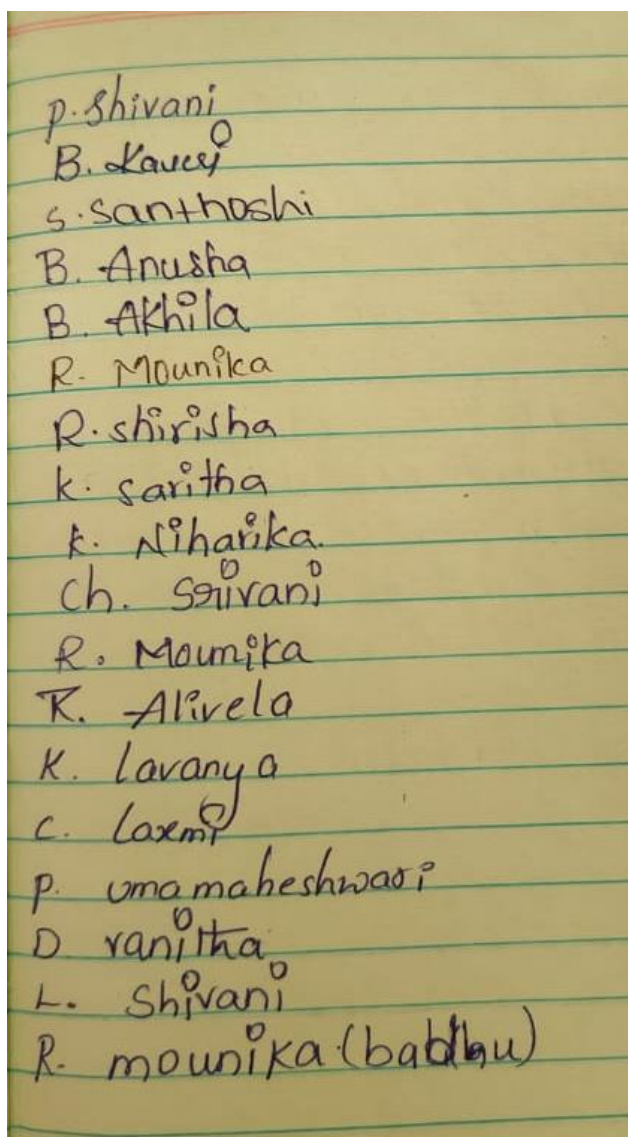 P. Shivani
B. Kaveri
S. Santhoshi
B. Anusha
B. Akhila
R. Mounika
R. shirisha
K. saritha
K. Niharika.
Ch. Srivani
R. Mounika
K. Alivela
K. lavanya
C. laxmi
P. umamaheshwari
D vanitha
L. Shivani
R. mounika